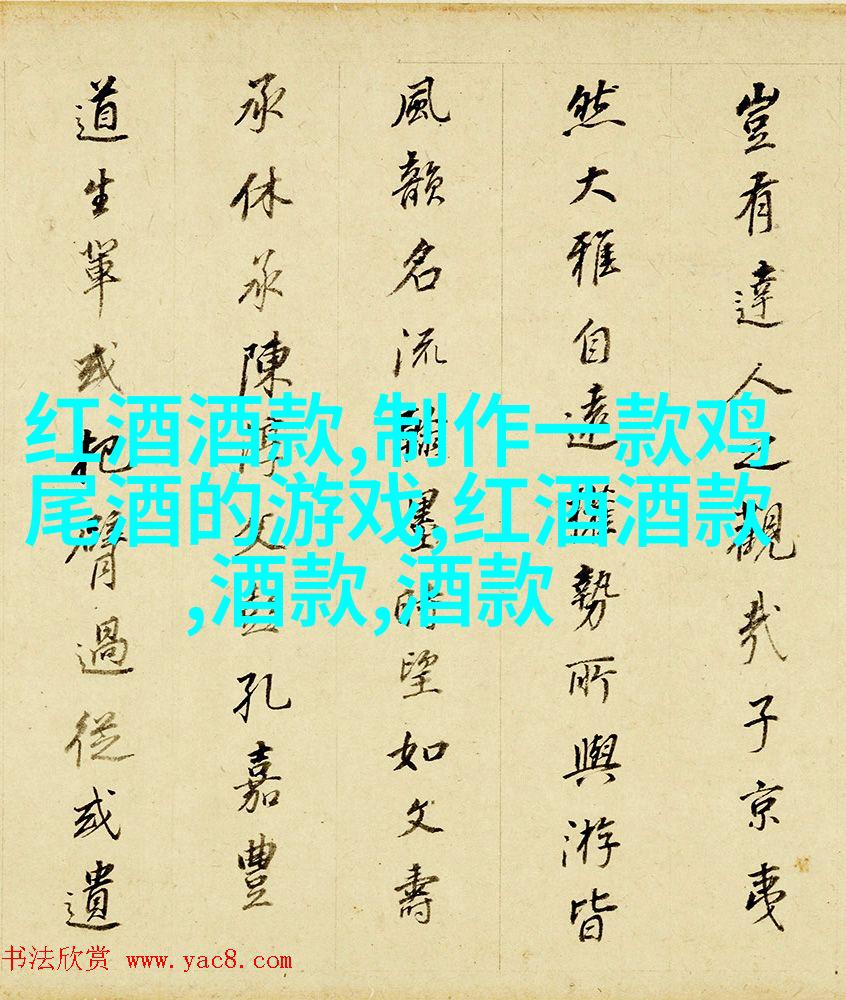 豈有達人之觀哉子京夷
然大雅自遠勢所與游皆
風韻名流墨時望如文壽
承休承陳淳父孔嘉豐
道生輩或把臂過從或遺
红酒酒款,制作一款鸡
尾酒的游戏,红酒酒款
,酒款,酒款
书法欣赏 www.yac8.com